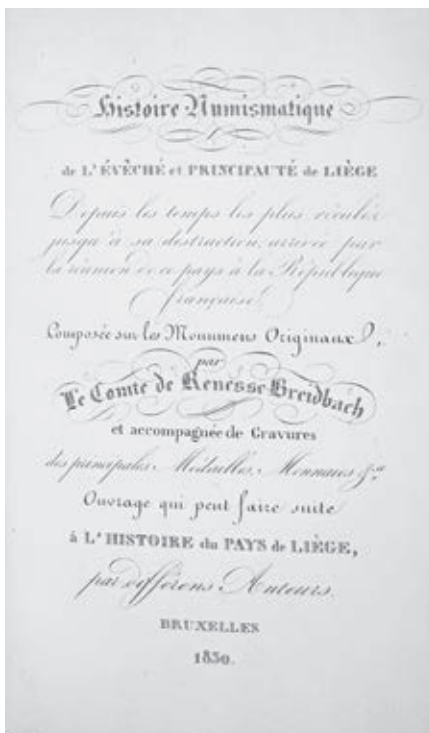 Histoire Numismatique
de L'ÉVÊCHÉ et PRINCIPAUTÉ de LIÈGE
Depuis les temps les plus réculés
jusqu'à sa destruction, arrivée par
la réunion de ce pays à la République
française,
Composée sur les Monumens Originaux,
par
Le Comte de Renesse Breidbach
et accompagnée de Gravures
des principales Médailles, Monnaies &.a
Ouvrage qui peut faire suite
à L'HISTOIRE du PAYS de LIÈGE,
par différens Auteurs.
BRUXELLES
1830.